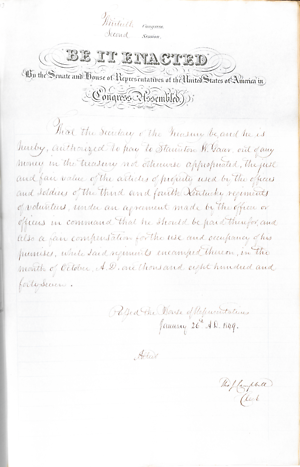 Thirtieth Congress
Second Session
BE IT ENACTED
By the Senate and House of Representatives of the United States of America in
Congress Assembled,
That the Secretary of the Treasury be, and he is
hereby, authorized to pay to Stainton W. out of any
money in the treasury not otherwise appropriated, the just
and fair value of the articles of property used by the officers
and soldiers of the third and fourth Kentucky regiments
of volunteers, under an agreement made by the officer or
officers in command that he should be paid therefor, and
also a fair compensation for the use and occupancy of his
premises, while said regiments encamped thereon, in the
month of October, A.D. one thousand eight hundred and
forty seven.
Passed the House of Representatives
January 20th A.D. 1849.
Attest
Tho. J. Campbell
Clerk